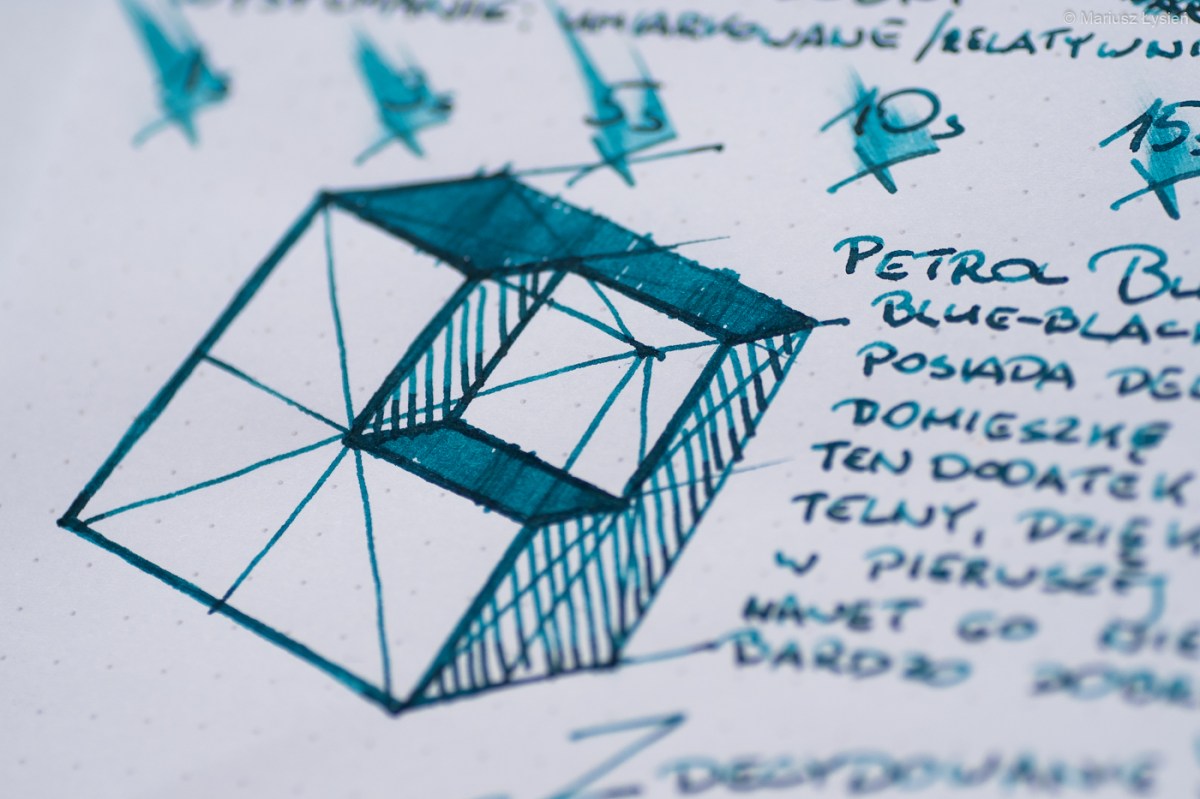 © Mariusz Lysień
UMIARKOWANE / RELATYWNI
5s 10s 15s
PETROL BLU
BLUE-BLAC
POSIADA DEL
DOMIESZKĘ
TEN DODATEK
TELNY, DZIĘK
W PIERWSZEJ
NAWET GO NIE
BARDZO DOBR
ZDECYDOWANIE